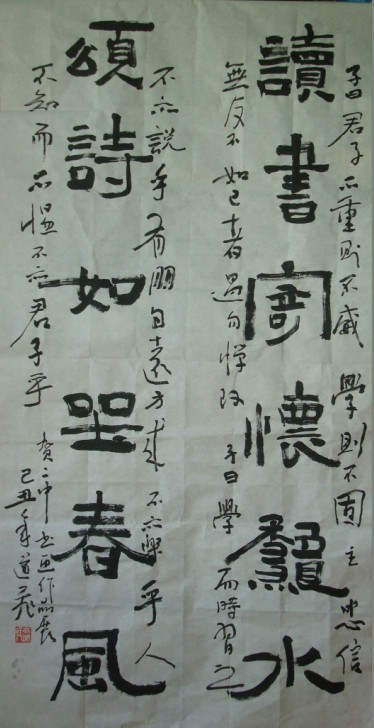 子曰君子不重則不威學則不固主忠信
讀書寄懷水
無友不如己者過勿憚改子曰學而時習之
不亦說乎有朋自遠方來不亦樂乎人
頌詩如坐春風
不知而不慍不亦君子乎
賀二中書画作品展
己丑年道